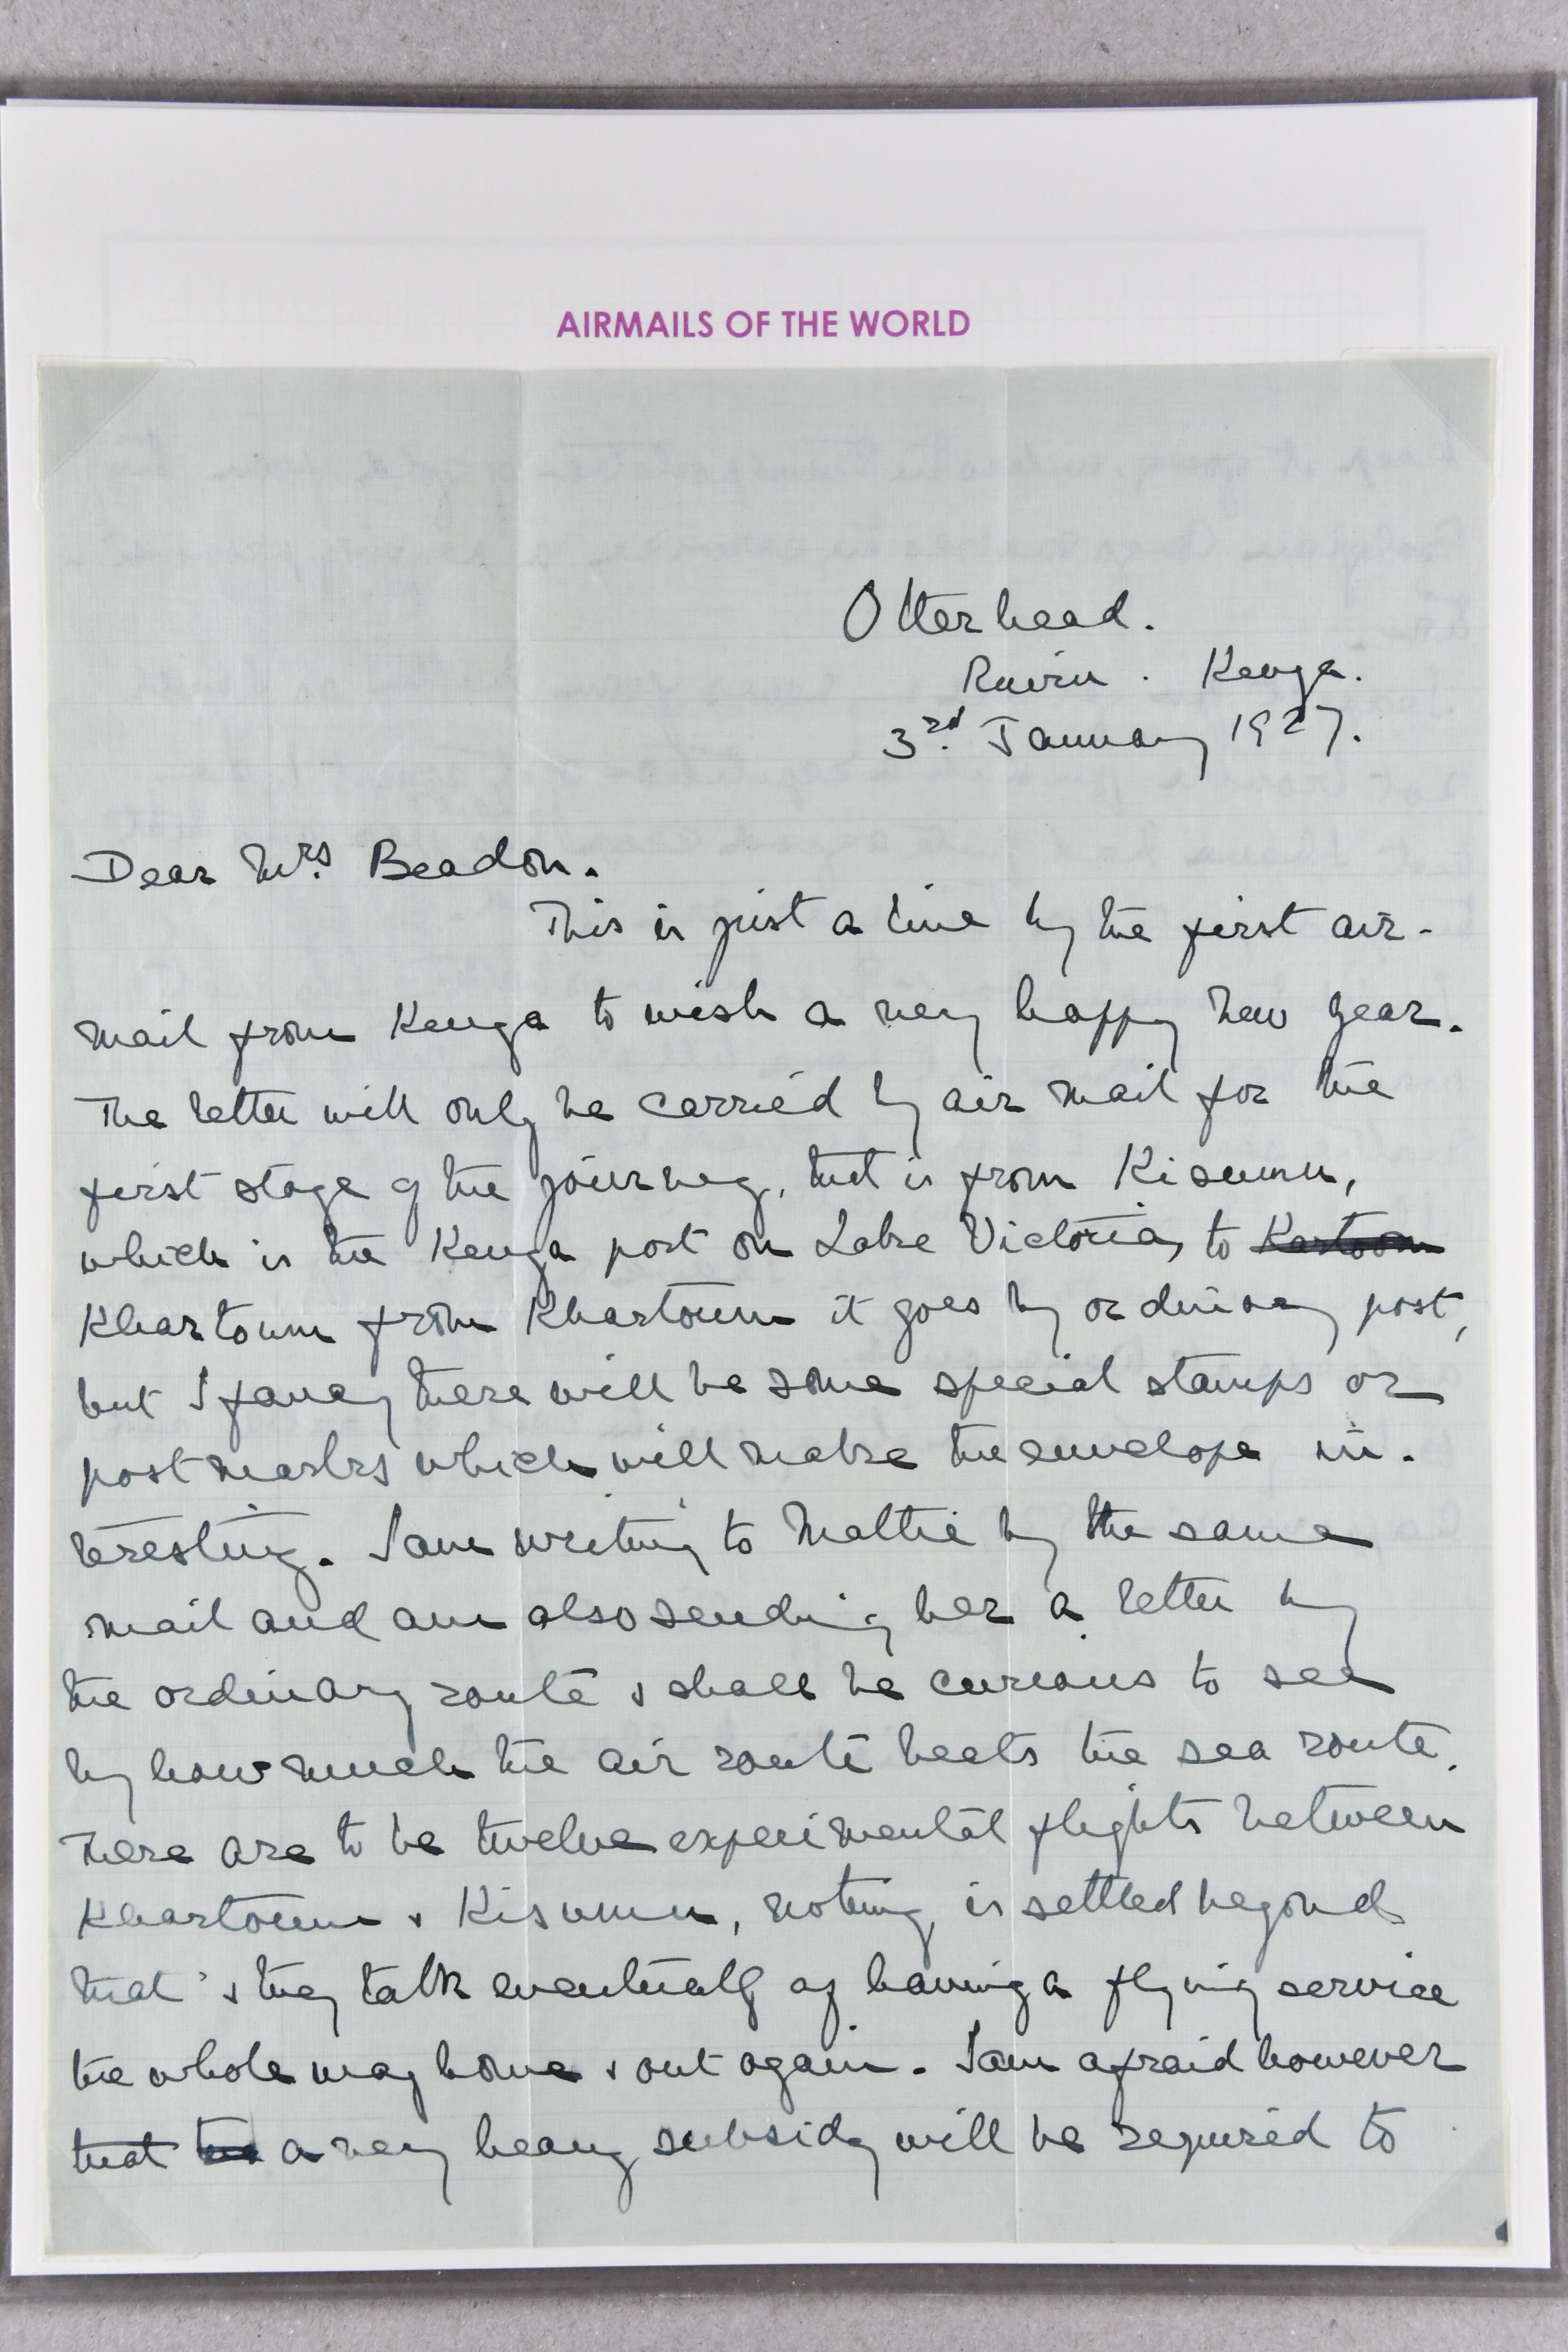 AIRMAILS OF THE WORLD
Otterhead.
Ruiru. Kenya.
3rd. January 1927.
Dear Mrs. Beadon.
This is just a line by the first air-
mail from Kenya to wish a very happy New year.
The letter will only be carried by air mail for the
first stage of the journey, that is from Kisumu,
which is the Kenya port on Lake Victoria, to Kartoom
Khartoum from Khartoum it goes by ordinary post,
but I fancy there will be some special stamps or
postmarks which will make the envelope in-
teresting. I am writing to Mattie by the same
mail and am also sending her a letter by
the ordinary route & shall be curious to see
by how much the air route beats the sea route.
There are to be twelve experimental flights between
Khartoum & Kisumu, nothing is settled beyond
that & they talk eventually of having a flying service
the whole way home & out again. I am afraid however
that a very heavy subsidy will be required to